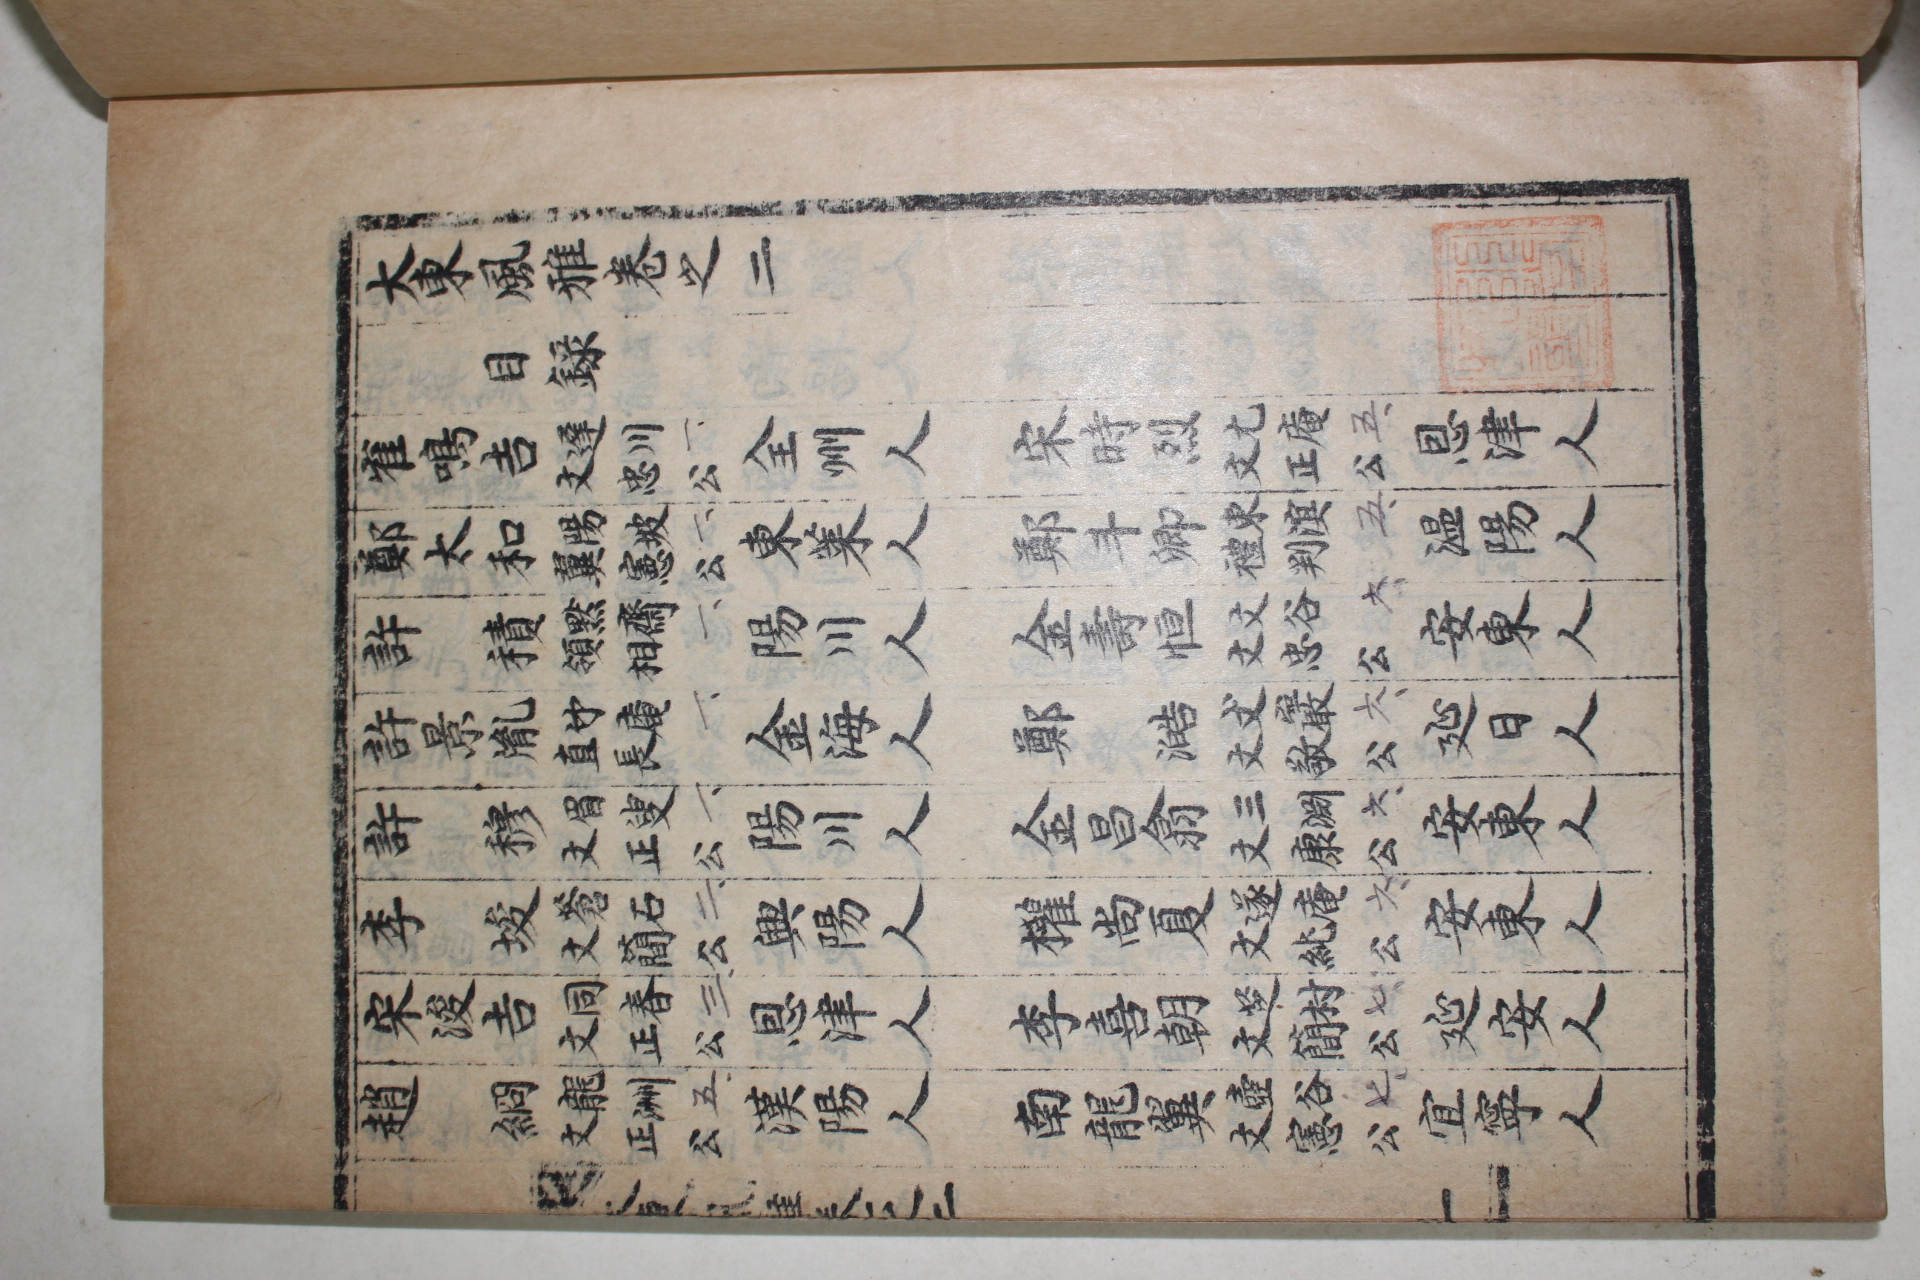 大東風雅卷之二
目錄
崔鳴吉 遲川一 文忠公 全州人 宋時烈 尤庵五 文正公 恩津人
鄭太和 陽坡一 翼憲公 東萊人 鄭斗卿 東溟五 禮判 溫陽人
許積 默齋一 領相 陽川人 金壽恒 文谷六 文忠公 安東人
許景胤 竹庵一 直長 金海人 鄭澔 丈巖六 文敬公 延日人
許穆 眉叟一 文正公 陽川人 金昌翕 三淵六 文康公 安東人
李埈 蒼石二 文簡公 興陽人 權尚夏 遂庵六 文純公 安東人
宋浚吉 同春三 文正公 恩津人 李喜朝 芝村七 文簡公 延安人
趙絅 龍洲五 文正公 漢陽人 南龍翼 壺谷七 文憲公 宜寧人